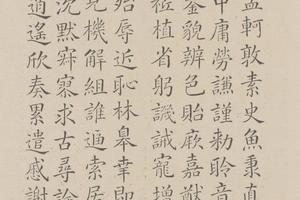 孟軻敦素史魚秉直
中庸勞謙謹勑聆音
鑒貌辨色貽厥嘉猷
祗植省躬譏誡寵增
殆辱近恥林皋幸即
見機解組誰逼索居
沉默寂寥求古尋論
逍遙欣奏累遣慼謝